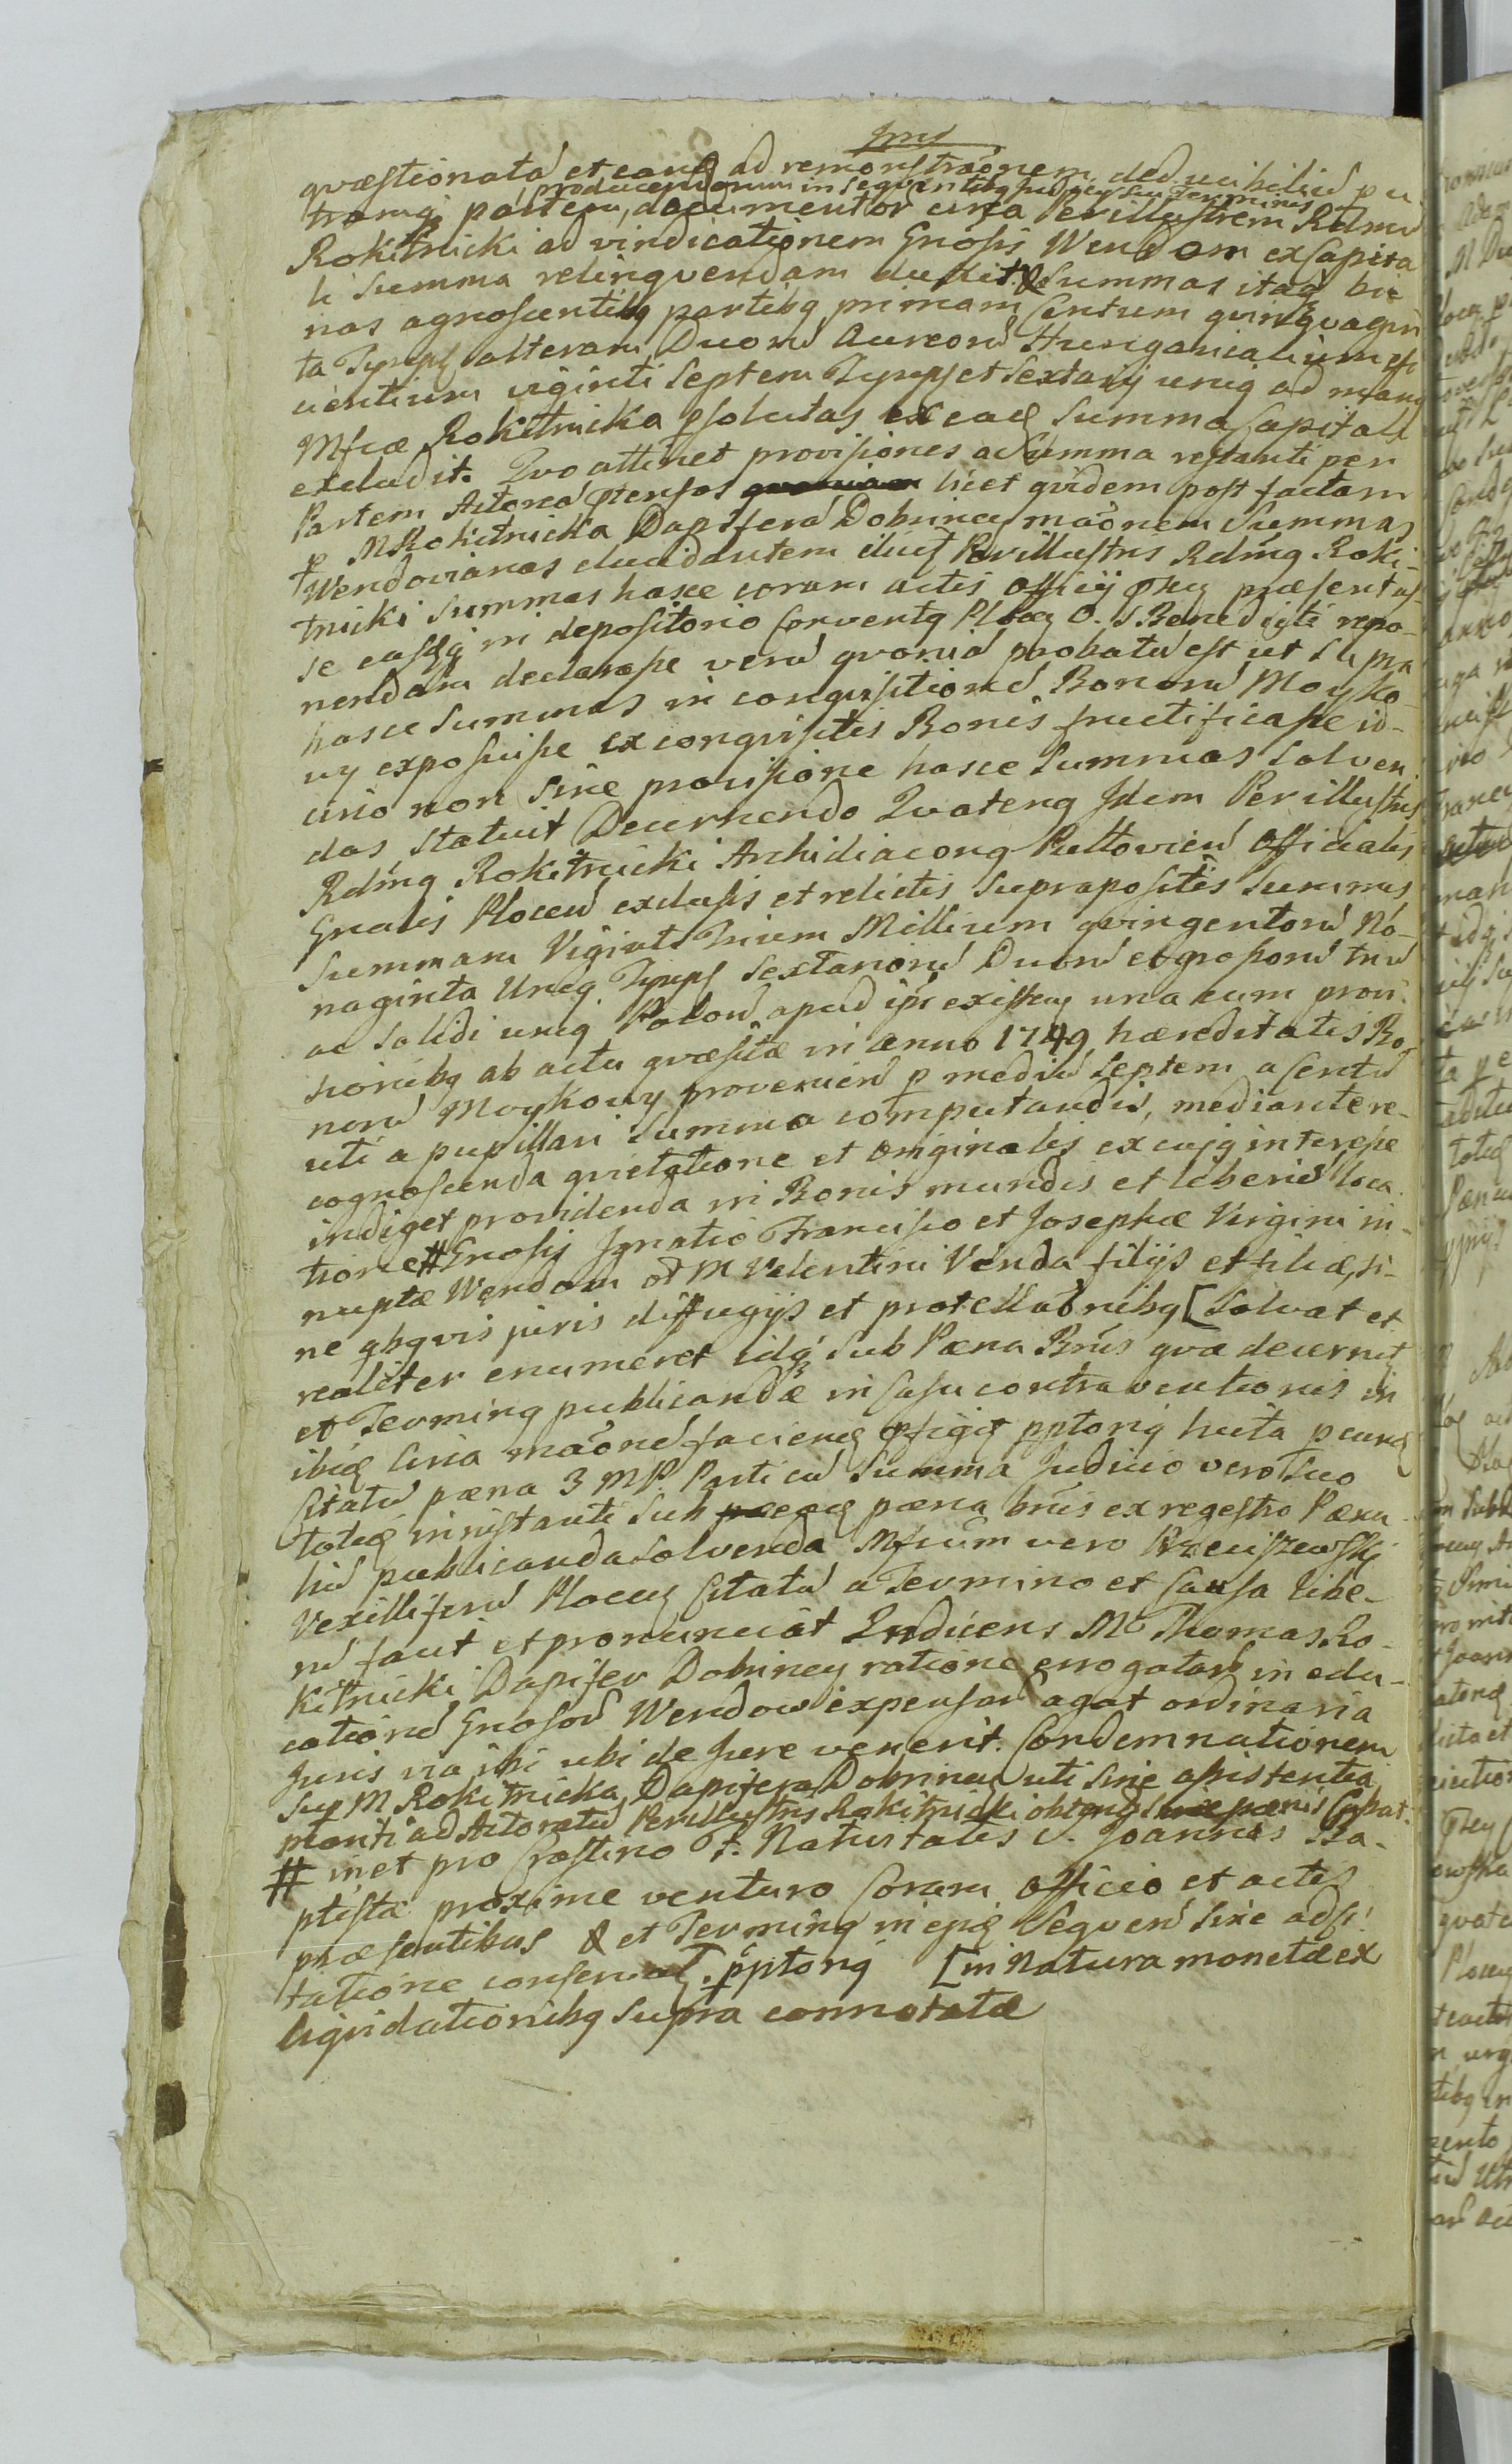 Jms
quæstionata et eand ad remonstraonem deducibilid p u
producendorum in sequentibg Terminis
tramq partem, documentor circa Perillustrem Rdmu
Rokitnicki ad vindicationem Gnosis Wendom ex Capita
li Summa relinquendam ducit. & Summas itaq bi
nas agnoscentibg partibg primam Centum quinquagin
ta Tympf alteram Duoru Aureoru Hungaricalium effi
cientium viginti Septem Tympf et Sextarij unig ad manq
Mfcæ Rokitnicka psolutas ex eadq Summa Capitali
excludit. Quo attinet provisiones a Summa restanti per
Partem Actorea ptensas licet quidem post factam
p M Rokitnicka Dapifera Dobrinen maonem Summas
Wendovianas elucidantem Perillustris Rdmg Roki-
tnicki Summas hasce coram actis officij præsentas-
se easqg in depositorio Conventg Plocen O. S Benedicti repo-
nendas declarasse veru quonia probatu est ut supra
hasce Summas in conquisitione Bonoru Moyko-
vy exposuisse ex conquisitis Bonis fructificasse id-
circo non sine provisione hasce Summas solven-
das statuit Decernendo Quateng Idem Perillustris
Rdmg Rokitnicki Archidiacong Pultovien Officialis
Gnalis Plocen exclusis et relictis supraspositis Summis
Summam Viginti Trium Millium quingentoru No-
naginta Unig Tympf Sextarioru Duoru et grossoru triu
ac solidi unig Polon apud ipm existen una cum provi-
sionibg ab actu quæsitæ in anno 1749 hæreditatis Bo-
noru Moykowy provenien p mediu septem a Centu
uti a pupillari Summa computandis, mediante re-
cognoscenda quietatione et originalis ex cujg interesse
indiget providenda in Bonis mundis et liberis loca-
tione # Gnosis Ignatio Francisco et Josephæ Virgini in-
nuptæ Wendom ol M Valentini Venda filijs et filiæ, si-
ne qbgvis juris diffugijs et protellaonibg [ Solvat et
realiter enumeret idq sub Pæna Bnis quæ decernit
et Terming publicandæ in Casu contraventionis in
ibiq circa maone facieng pfigit pptorig hucta p eunq
Citatu pæna 3 MP. Parti cu Summa Judicio vero Suo
totiq in instanti sub eadq pæna bnis ex regestro Pæna
liu publicanda solvenda Mficum vero Kreciszewski
Vexilliferu Plocen Citatu a Termino et Causa libe-
ru facit et pronunciat Inducens M Thomas Ro-
kitnicki Dapifer Dobrinen ratione errogataru in edu-
catione Gnosoru Wendow expensaru agat ordinaria
Juris via ibi ubi de Jure venerit. Condemnationem
sup M Rokitnicka Dapifera Dobrinen uti sine assistentia
manti ad Actoratu Perillustris Rokitnicki obtent sine pænis
# in et pro Crastino F. Nativitatis S. Joannis Ba-
ptistæ proxime venturo Coram officio et actis
præsentibus & et Terming in ejq Sequen sine adci-
tatione conservat. pptorig [ in Natura monetæ ex
liquidationibg supra connotatæ